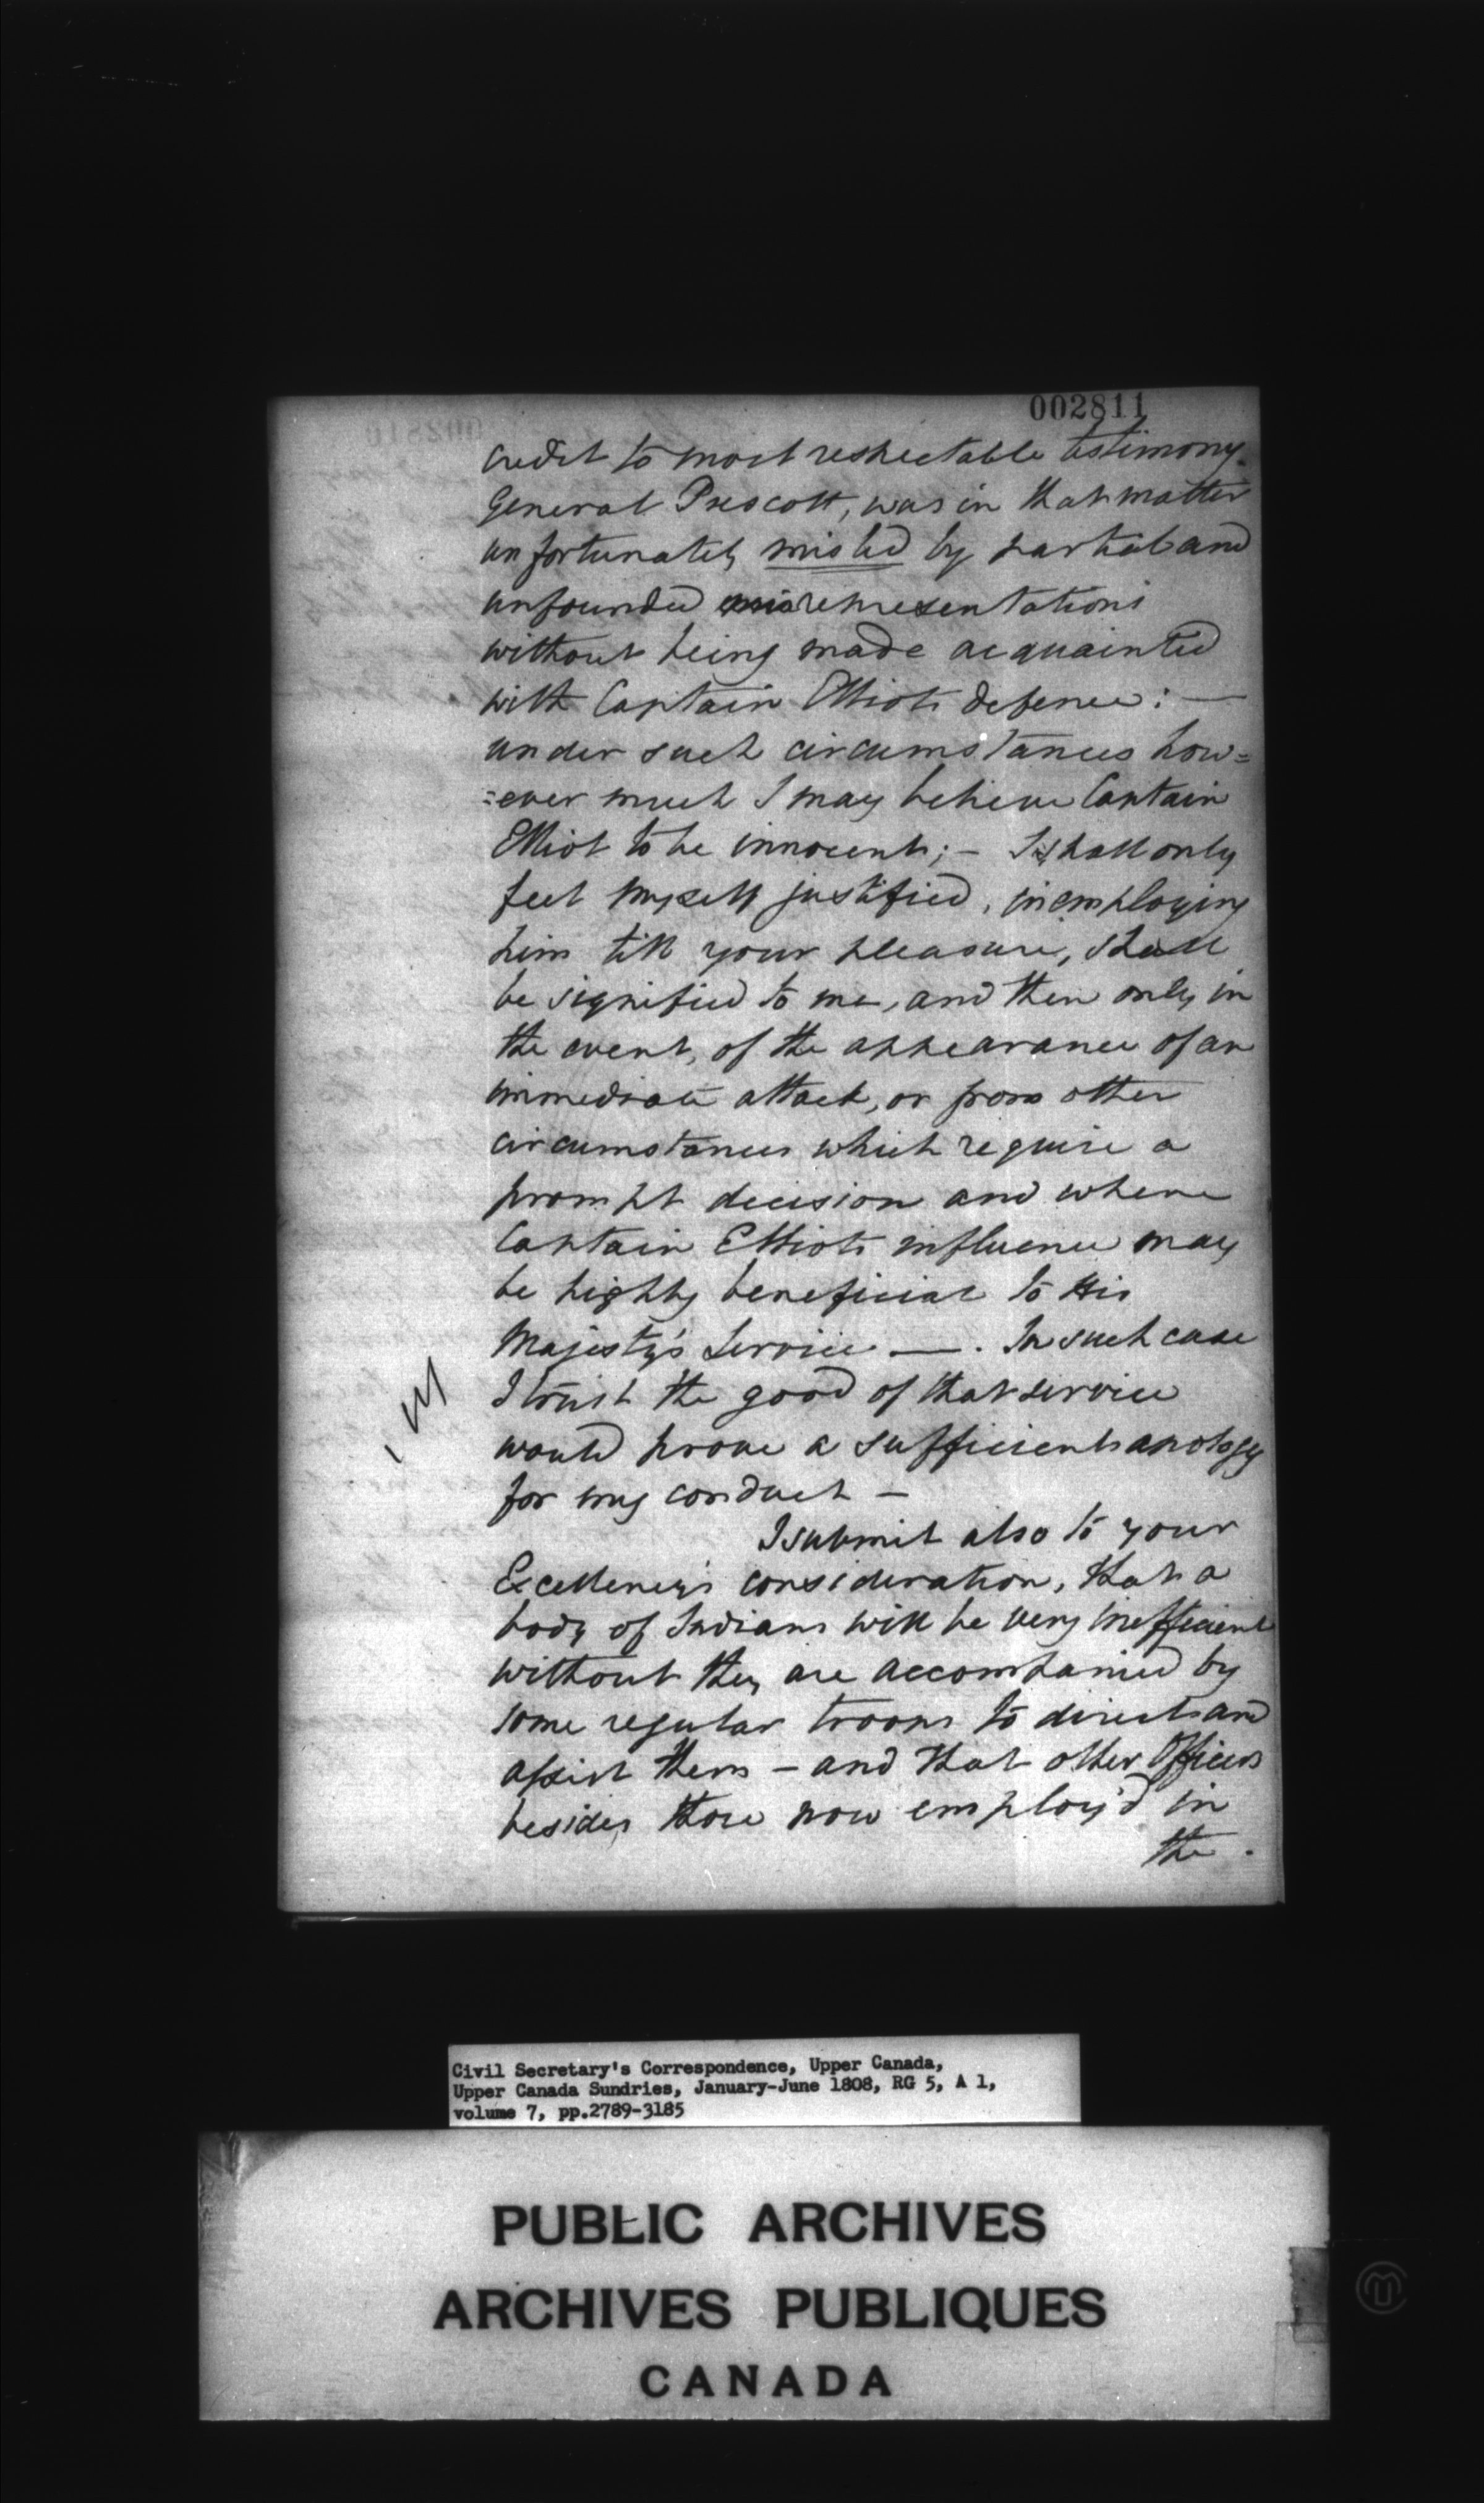 002811
credit to most respectable testimony.
General Prescott, was in that matter
unfortunately misled by partial and
unfounded representations
without being made acquainted
with Captain Elliots defence: —
under such circumstances how=
=ever much I may believe Captain
Elliot to be innocent; — I shall only
feel myself justified, in employing
him till your pleasure, shall
be signified to me, and then only in
the event, of the appearance of an
immediate attack, or from other
circumstances which require a
prompt decision and where
Captain Elliots influence may
be highly beneficial to His
Majesty's Service —. In such case
I trust the good of that service
would prove a sufficient apology
for my conduct —
I submit also to your
Excellency's consideration, that a
body of Indians will be very inefficient
without they are accompanied by
some regular troops to direct and
assist them — and that other Officers
besides those now employ'd in
the .
Civil Secretary's Correspondence, Upper Canada,
Upper Canada Sundries, January-June 1808, RG 5, A 1,
volume 7, pp.2789-3185
PUBLIC ARCHIVES
ARCHIVES PUBLIQUES
CANADA